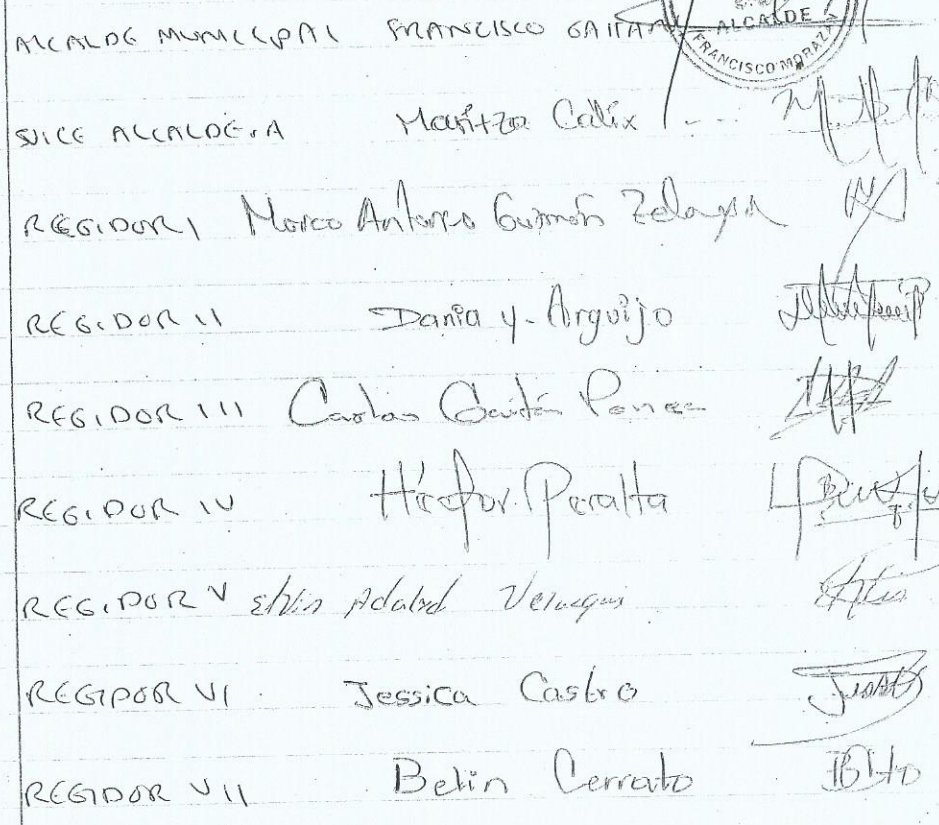 ALCALDE
FRANCISCO MORAZ
ALCALDE MUNICIPAL FRANCISCO GAITAN
VICE ALCALDESA Maritza Calix
REGIDOR I Marco Antonio Guzmán Zelaya
REGIDOR II Dania Y. Arguijo
REGIDOR III Carlos Gaitán Ponce
REGIDOR IV Héctor Peralta
REGIDOR V Elvin Adalid
REGIDOR VI Jessica Castro
REGIDOR VII Belin Cerrato